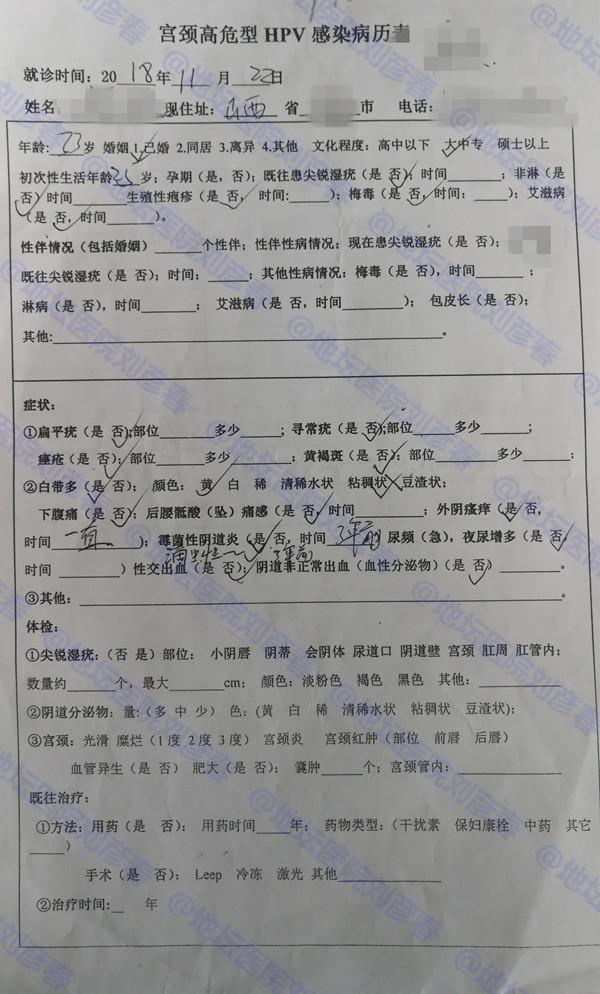 宫颈高危型 HPV 感染病历
就诊时间：2018年11月22日
姓名 现住址：山西 省 市 电话：
年龄：23岁 婚姻 1.已婚 2.同居 3.离异 4.其他 文化程度：高中以下 大中专 硕士以上
初次性生活年龄 岁；孕期（是，否）；既往患尖锐湿疣（是 否）；时间______；非淋（是
否）时间______ 生殖性疱疹（是 否， 时间:______）；梅毒（是 否，时间：____）；艾滋病
（是 否，时间______）。
性伴情况（包括婚姻）______个性伴；性伴性病情况；现在患尖锐湿疣（是 否）；
既往尖锐湿疣（是 否）；时间：____；其他性病情况：梅毒（是 否），时间______；
淋病（是 否），时间______； 艾滋病（是 否，时间________）； 包皮长（是 否）；
其他:______。
症状：
①扁平疣（是 否）；部位______多少____；寻常疣（是 否）；部位____多少____；
痤疮（是 否）；部位______多少______； 黄褐斑（是 否）；部位____多少____；
②白带多（是 否）； 颜色： 黄 白 稀 清稀水状 粘稠状 豆渣状；
下腹痛（是 否）；后腰骶酸（坠）痛感（是 否，时间________）；外阴瘙痒（是 否，
时间 一直 ）；霉菌性阴道炎（是 否，时间 2年前 尿频（急），夜尿增多（是 否，
时间 ______）性交出血（是 否）；阴道非正常出血（血性分泌物）（是 否）______。
③其他：______。
体检：
①尖锐湿疣：（否 是）部位： 小阴唇 阴蒂 会阴体 尿道口 阴道壁 宫颈 肛周 肛管内；
数量约____个，最大______cm； 颜色：淡粉色 褐色 黑色 其他：______
②阴道分泌物：量：（多 中 少） 色：（黄 白 稀 清稀水状 粘稠状 豆渣状）；
③宫颈：光滑 糜烂（1度 2度 3度） 宫颈炎 宫颈红肿（部位 前唇 后唇）
血管异生（是 否） 肥大（是 否）； 囊肿____个；宫颈管内：______
既往治疗：
①方法：用药（是 否）： 用药时间____年； 药物类型：（干扰素 保妇康栓 中药 其它
____）
手术（是 否）： Leep 冷冻 激光 其他________
②治疗时间：__ 年
@地坛医院刘彦春